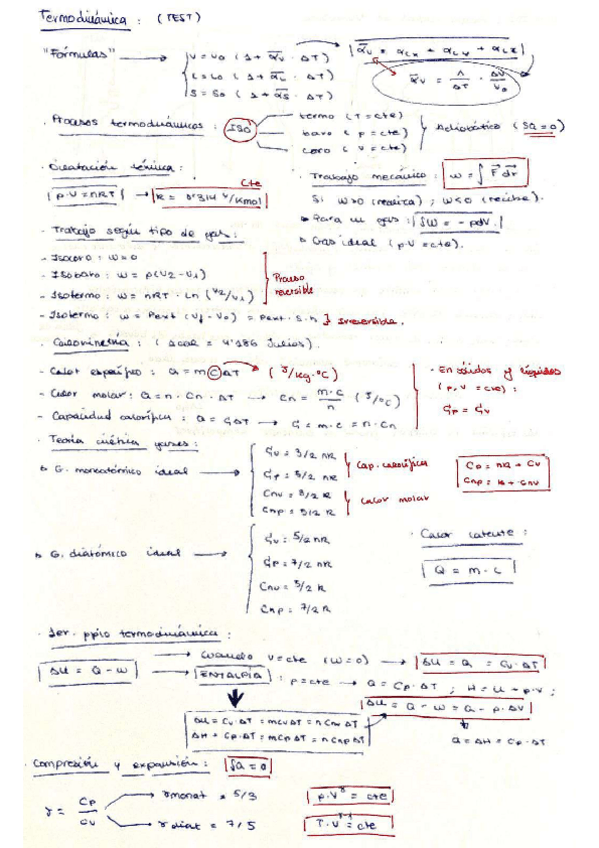 Termodinámica : (TEST)
"Fórmulas" → V = V₀ (1 + α̅v · ΔT) → α̅v = αLx + αLy + αLz
L = L₀ (1 + α̅L · ΔT)
S = S₀ (1 + α̅s · ΔT)
α̅v = 1/ΔT · ΔV/V₀
· Procesos termodinámicos : ISO
termo (T = cte)
baro (p = cte)
coro (V = cte)
Adiabático (δQ = 0)
· Dilatación térmica :
p·V = nRT → R = 8'314 J/Kmol
Cte
· Trabajo mecánico : w = ∫ F⃗ dr⃗
Si w>0 (realiza) ; w<0 (recibe).
Para un gas : δW = - pdV.
Gas ideal (p·V = cte).
· Trabajo según tipo de gas :
- Isocoro : w = 0
- Isobaro : w = p(V₂ - V₁)
- Isotermo : w = nRT · Ln (V₂/V₁)
Proceso reversible
- Isotermo : w = Pext (Vf - V₀) = Pext · S · h } Irreversible.
· Calorimetría : (1 cal = 4'186 Julios).
- Calor específico : Q = m C ΔT (J/kg·ºC)
- Calor molar : Q = n · Cn · ΔT → Cn = m·c/n (J/ºC)
- Capacidad calorífica : Q = CΔT → C = m·c = n·Cn
· En sólidos y líquidos
(p·V = cte) :
Cp = Cv
· Teoría cinética gases :
G. monoatómico ideal →
Cv = 3/2 nR
Cp = 5/2 nR
Cap. calorífica
Cnv = 3/2 R
Cnp = 5/2 R
Calor molar
Cp = nR + Cv
Cnp = R + Cnv
G. diatómico ideal →
Cv = 5/2 nR
Cp = 7/2 nR
Cnv = 5/2 R
Cnp = 7/2 R
· Calor latente :
Q = m · L
· 1er. ppio termodinámica :
ΔU = Q - W
→ Cuando V = cte (W=0) → ΔU = Q = Cv · ΔT
→ ENTALPÍA : p = cte → Q = Cp · ΔT ; H = U + p·V ;
ΔU = Q - W = Q - p·ΔV
ΔU = Cv·ΔT = mCvΔT = nCnvΔT
ΔH + Cp·ΔT = mCpΔT = nCnpΔT
Q = ΔH = Cp · ΔT
· Compresión y expansión : δQ = 0
γ = Cp/Cv
γ monat = 5/3
γ diat = 7/5
p·V^γ = cte
T·V^γ-1 = cte